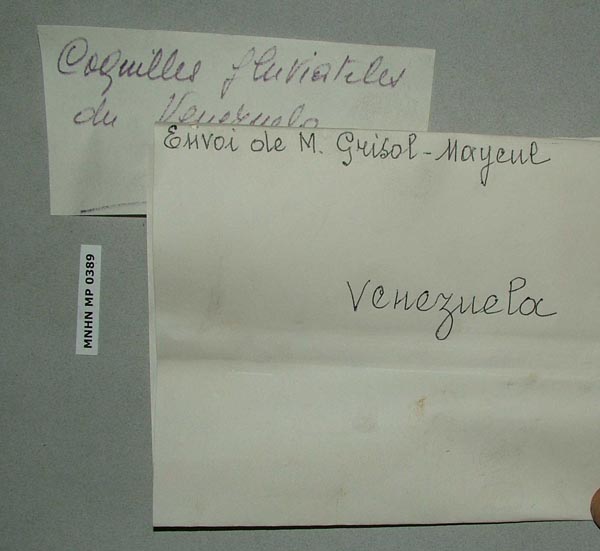 Coquilles fluviatiles
du Venezuela
Envoi de M. Grisol-Mayeul
Venezuela
MNHN MP 0389